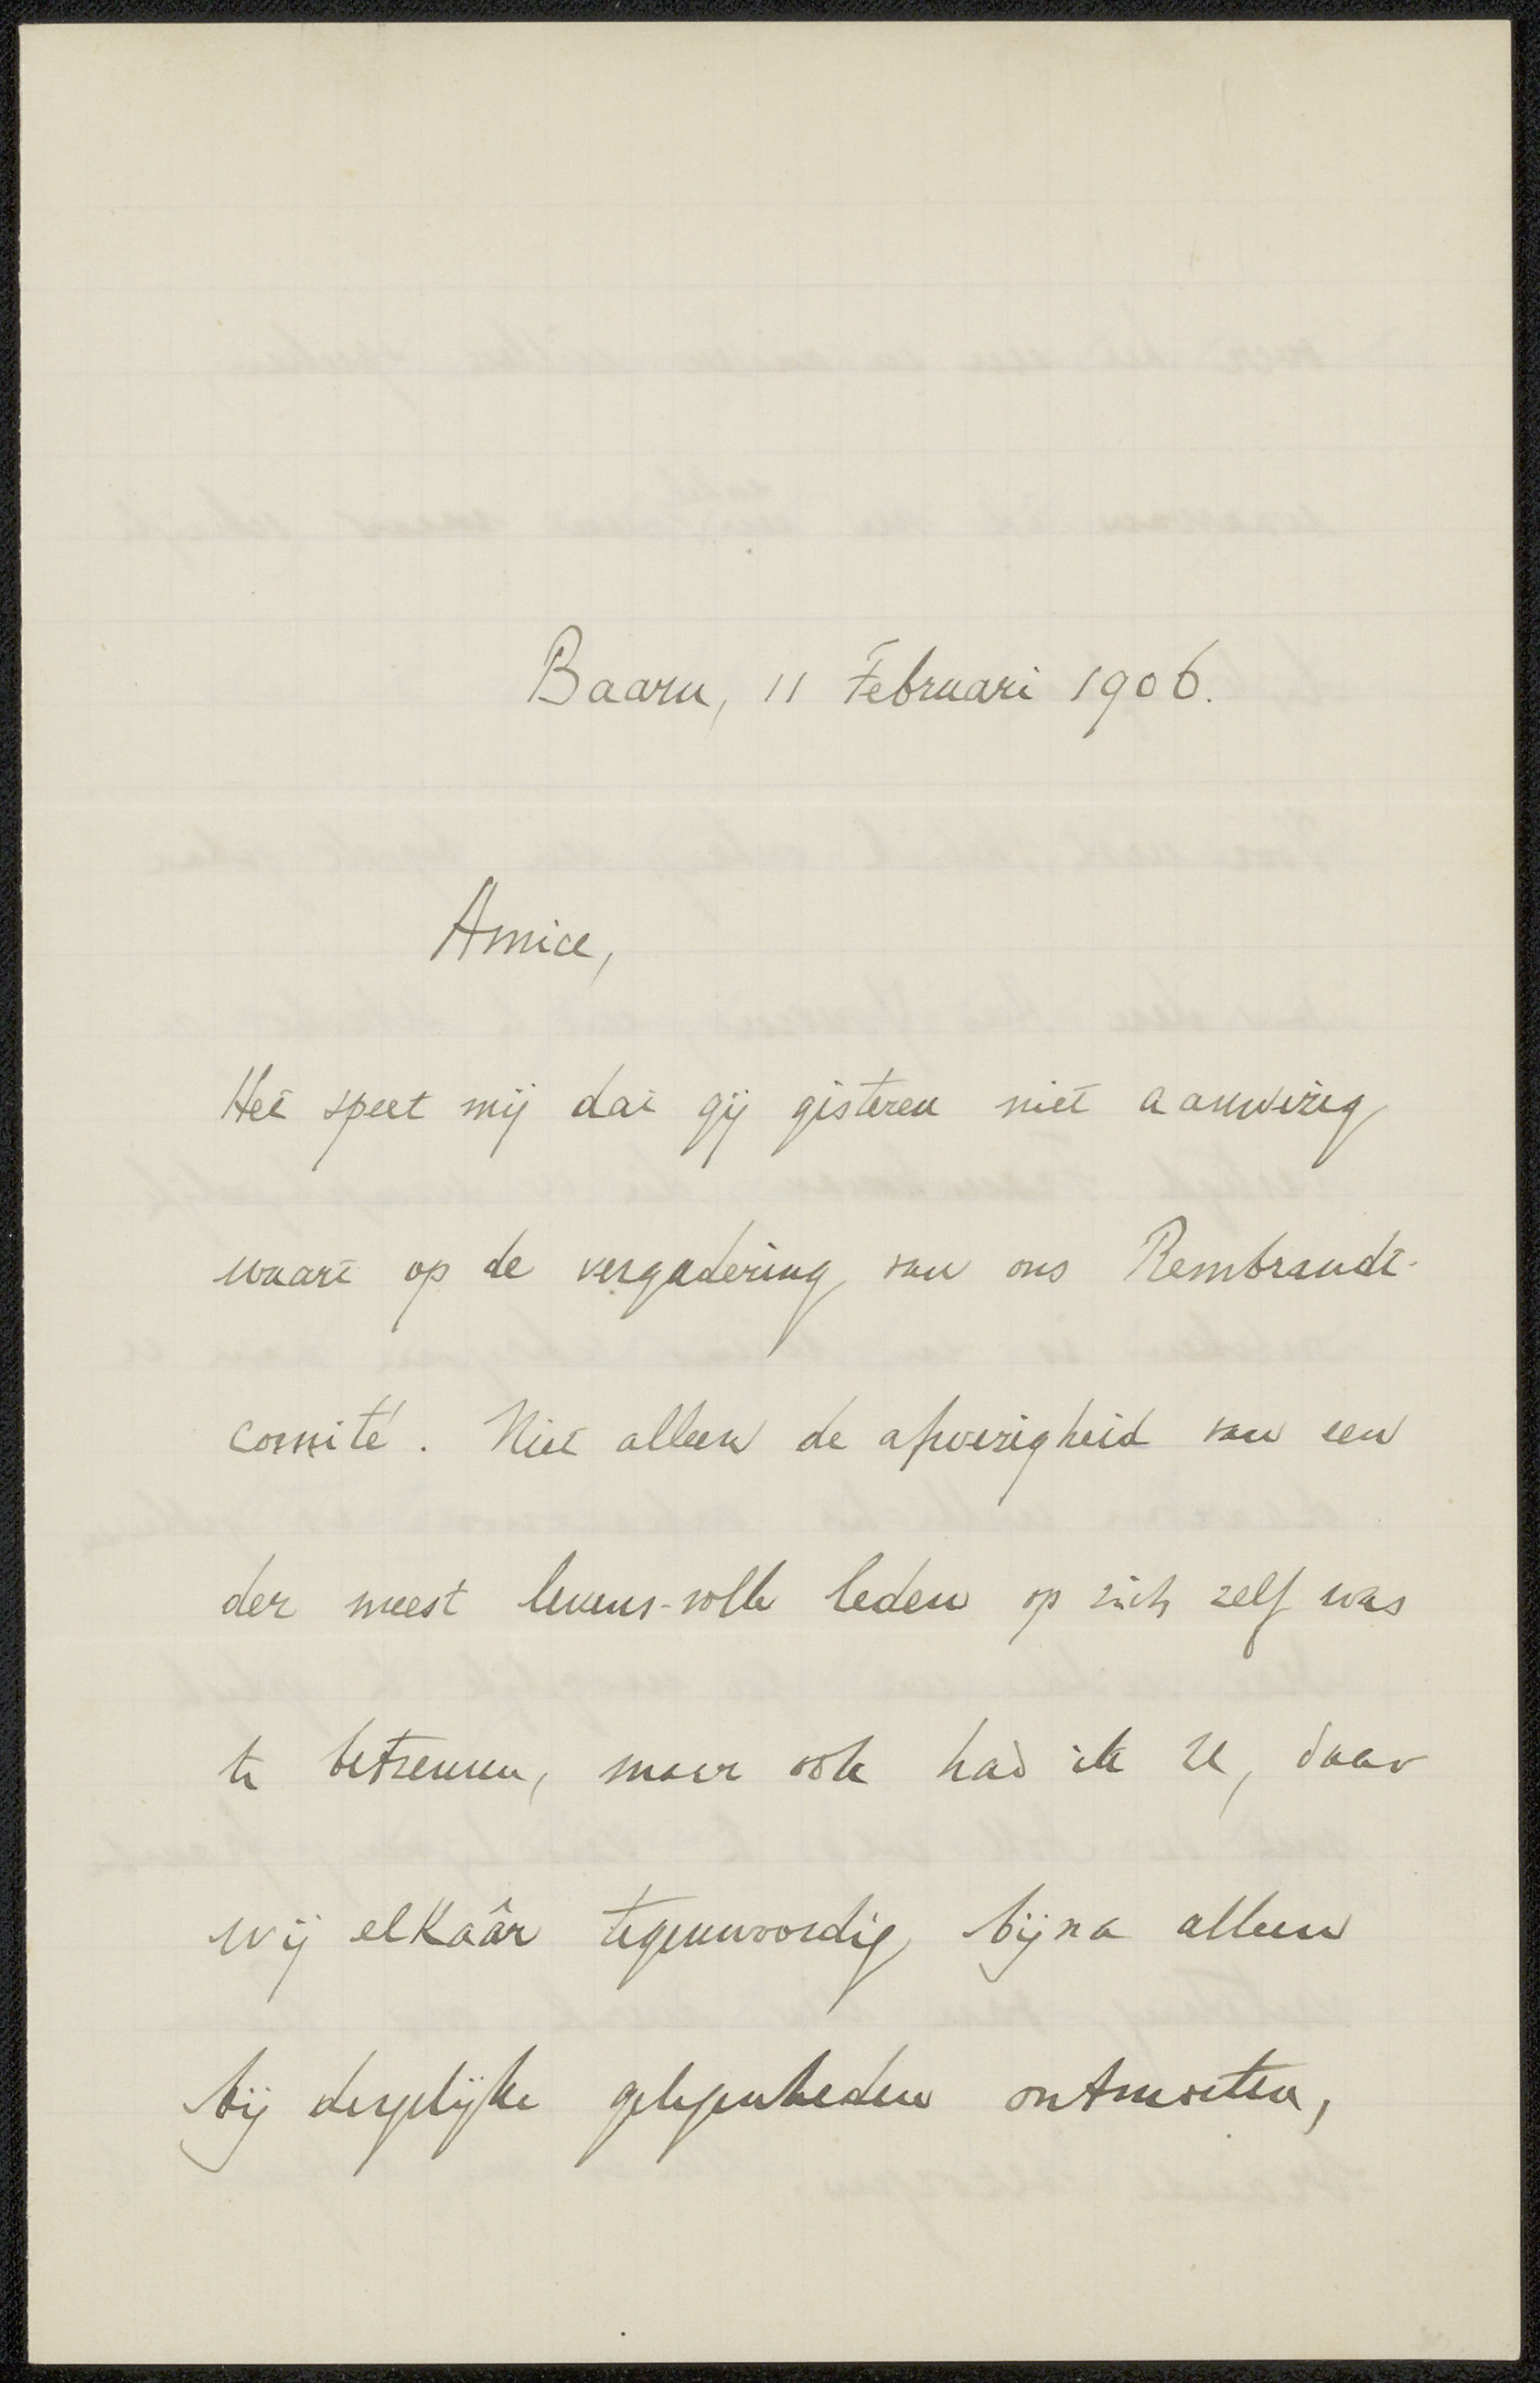 Baarn, 11 Februari 1906.
Amice,
Het speet mij dat gij gisteren niet aanwezig
waart op de vergadering van ons Rembrandt-
comité. Niet alleen de afwezigheid van een
der meest levens-volle leden op zich zelf was
te betreuren, maar ook had ik U, daar
wij elkaâr tegenwoordig bijna alleen
bij dergelijke gelegenheden ontmoeten,